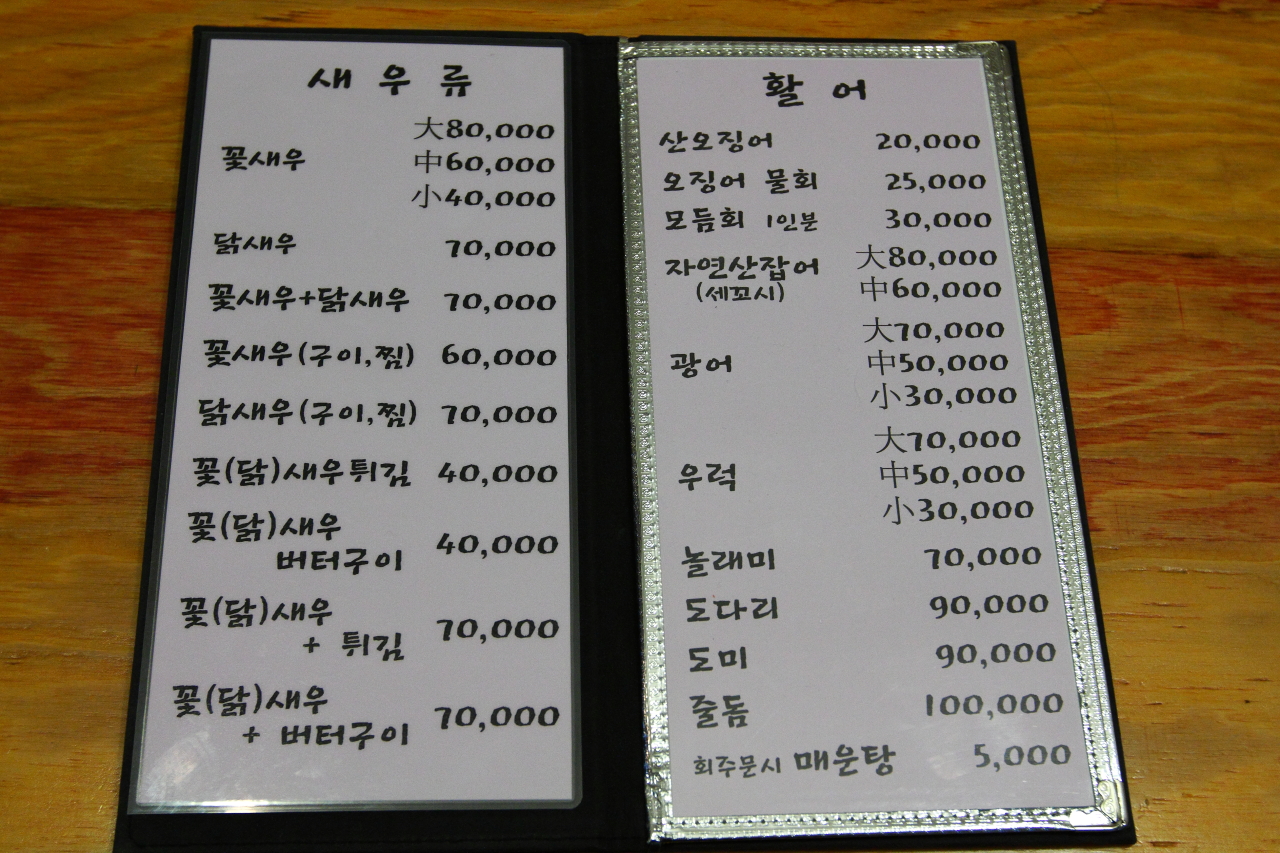 새우류
大80,000
꽃새우 中60,000
小40,000
닭새우 70,000
꽃새우+닭새우 70,000
꽃새우(구이,찜) 60,000
닭새우(구이,찜) 70,000
꽃(닭)새우튀김 40,000
꽃(닭)새우
버터구이 40,000
꽃(닭)새우
+ 튀김 70,000
꽃(닭)새우
+ 버터구이 70,000
활어
산오징어 20,000
오징어 물회 25,000
모듬회 1인분 30,000
자연산잡어 大80,000
(세꼬시) 中60,000
大70,000
광어 中50,000
小30,000
大70,000
우럭 中50,000
小30,000
놀래미 70,000
도다리 90,000
도미 90,000
줄돔 100,000
회주문시 매운탕 5,000